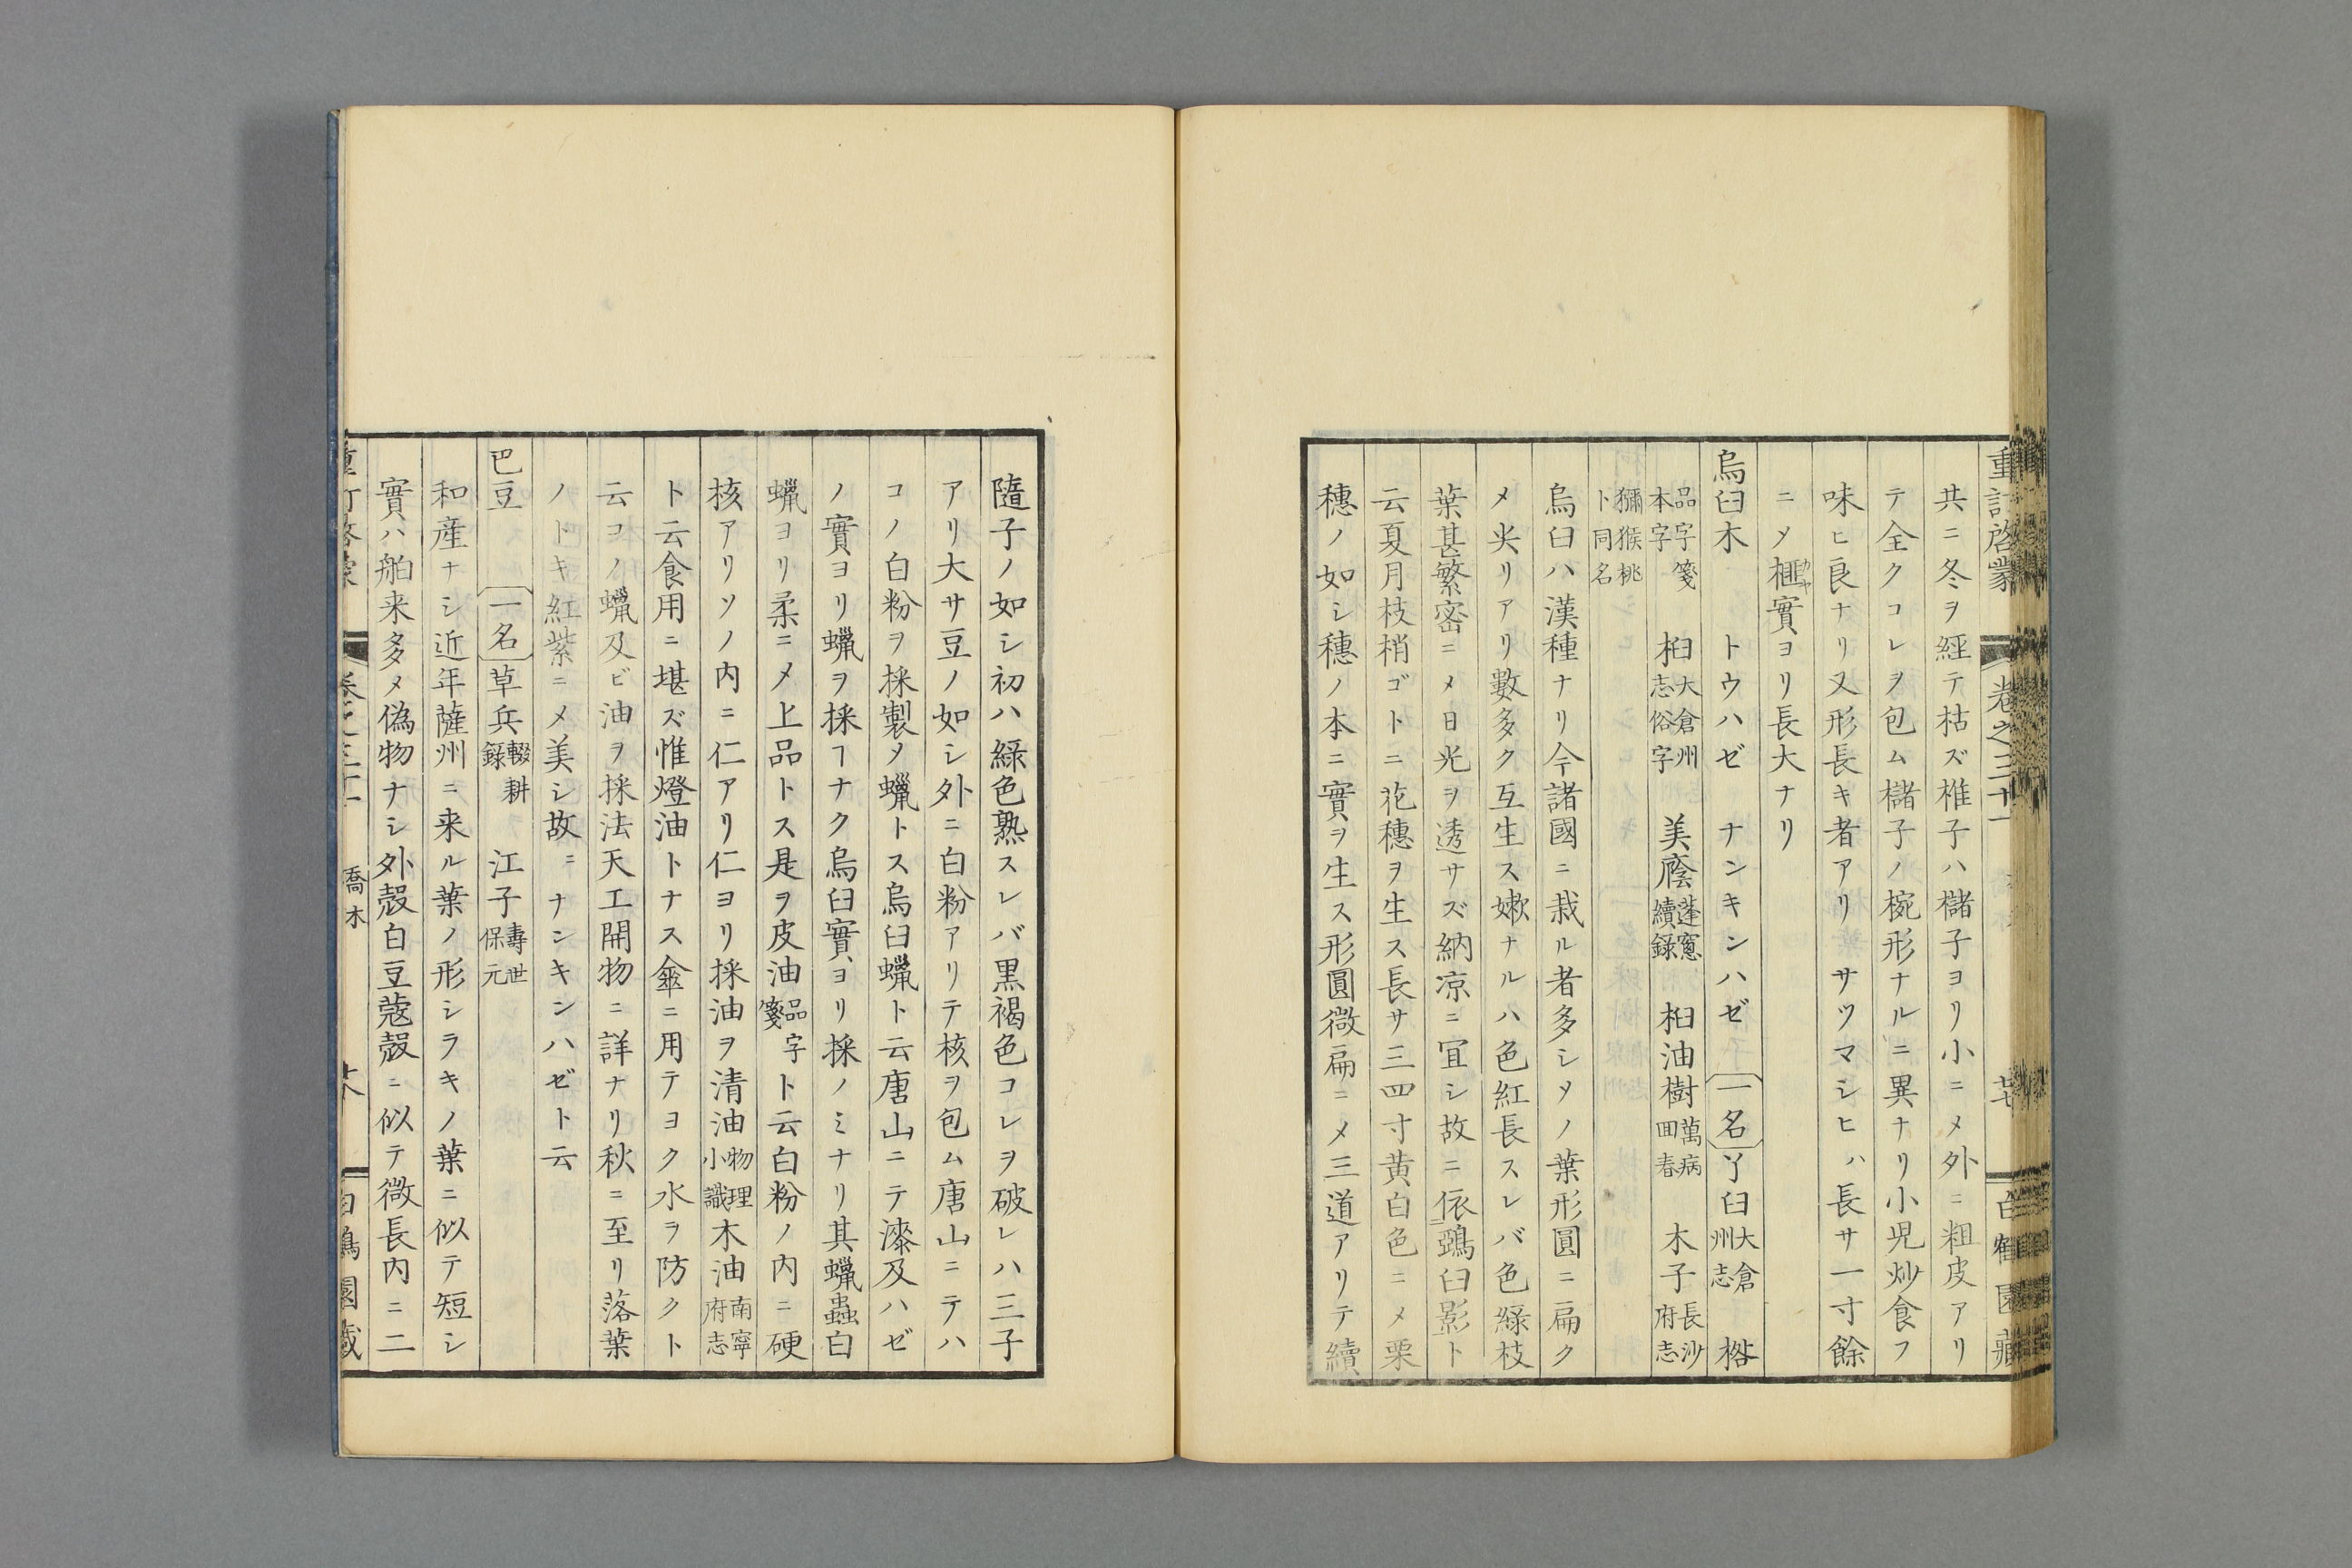 重訂啓蒙 卷之三十一 廿七 白鶴園藏
共ニ冬ヲ經テ枯ズ椎子ハ櫧子ヨリ小ニメ外ニ粗皮アリ
テ全クコレヲ包ム櫧子ノ椀形ナルニ異ナリ小児炒食フ
味ヒ良ナリ又形長キ者アリ サツマシヒハ長サ一寸餘
ニメ榧實ヨリ長大ナリ
烏臼木 トウハゼ ナンキンハゼ 一名 丫臼大倉州志 榙
品字箋本字 桕大倉州志俗字 美䕃蓬窻續録 桕油樹萬病回春 木子長沙府志
獼猴桃ト同名
烏臼ハ漢種ナリ今諸國ニ栽ル者多シソノ葉形圓ニ扁ク
メ尖リアリ數多ク互生ス嫩ナルハ色紅長スレバ色緑枝
葉甚繁密ニメ日光ヲ透サズ納凉ニ宜シ故ニ依鵶臼影ト
云夏月枝梢ゴトニ花穗ヲ生ス長サ三四寸黄白色ニメ栗
穗ノ如シ穗ノ本ニ實ヲ生ス形圓微扁ニメ三道アリテ續
隨子ノ如シ初ハ緑色熟スレバ黒褐色コレヲ破レハ三子
アリ大サ豆ノ如シ外ニ白粉アリテ核ヲ包ム唐山ニテハ
コノ白粉ヲ採製メ蠟トス烏臼蠟ト云唐山ニテ漆及ハゼ
ノ實ヨリ蠟ヲ採ヿナク烏臼實ヨリ採ノミナリ其蠟蟲白
蠟ヨリ柔ニメ上品トス是ヲ皮油品字箋ト云白粉ノ内ニ硬
核アリソノ内ニ仁アリ仁ヨリ採油ヲ清油物理小識木油南寧府志
ト云食用ニ堪ズ惟燈油トナス傘ニ用テヨク水ヲ防クト
云コノ蠟及ビ油ヲ採法天工開物ニ詳ナリ秋ニ至リ落葉
ノトキ紅紫ニメ美シ故ニナンキンハゼト云
巴豆 一名 草兵輟耕録 江子壽世保元
和産ナシ近年薩州ニ来ル葉ノ形シラキノ葉ニ似テ短シ
實ハ舶来多メ偽物ナシ外殻白豆蔻殻ニ似テ微長内ニ二
喬木